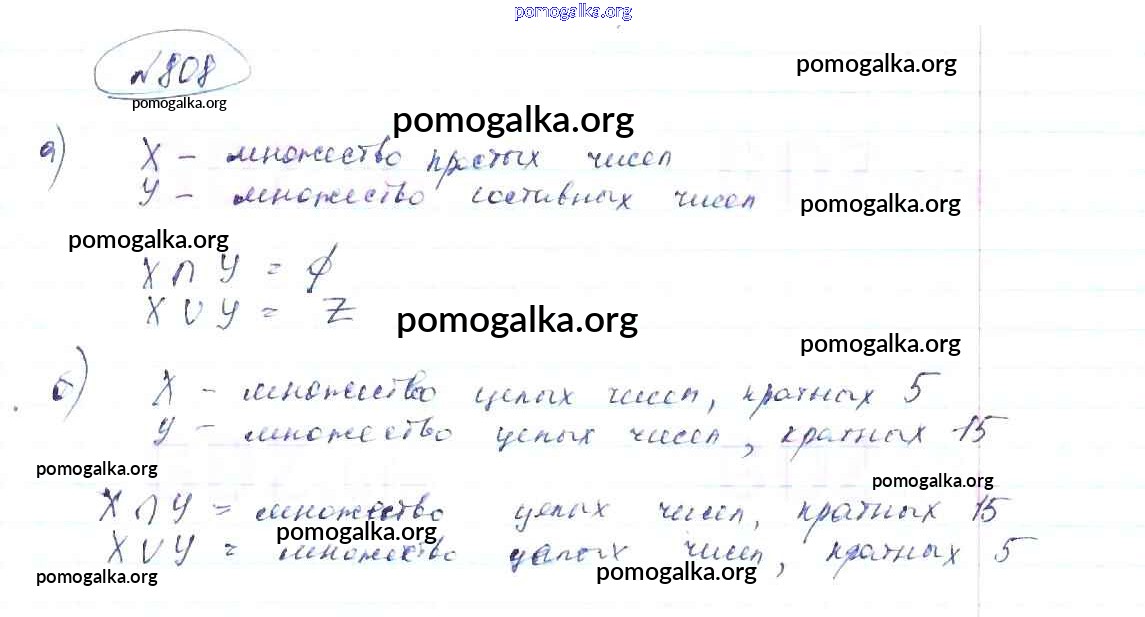 pomogalka.org
№808
pomogalka.org
pomogalka.org
pomogalka.org
а) X – множество простых чисел
Y – множество составных чисел
pomogalka.org
pomogalka.org
X ∩ Y = ϕ
X ∪ Y = Z
pomogalka.org
pomogalka.org
б) X – множество целых чисел, кратных 5
Y – множество целых чисел, кратных 15
pomogalka.org
pomogalka.org
X ∩ Y = множество целых чисел, кратных 15
pomogalka.org
X ∪ Y = множество целых чисел, кратных 5
pomogalka.org
pomogalka.org